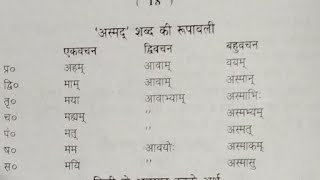 ( 18 )
'अस्मद्' शब्द की रूपावली
एकवचन द्विवचन बहुवचन
प्र० अहम् आवाम् वयम्
द्वि० माम् आवाम् अस्मान्
तृ० मया आवाभ्याम् अस्माभिः
च० मह्यम् " अस्मभ्यम्
पं० मत् " अस्मत्
ष० मम आवयोः अस्माकम्
स० मयि " अस्मासु